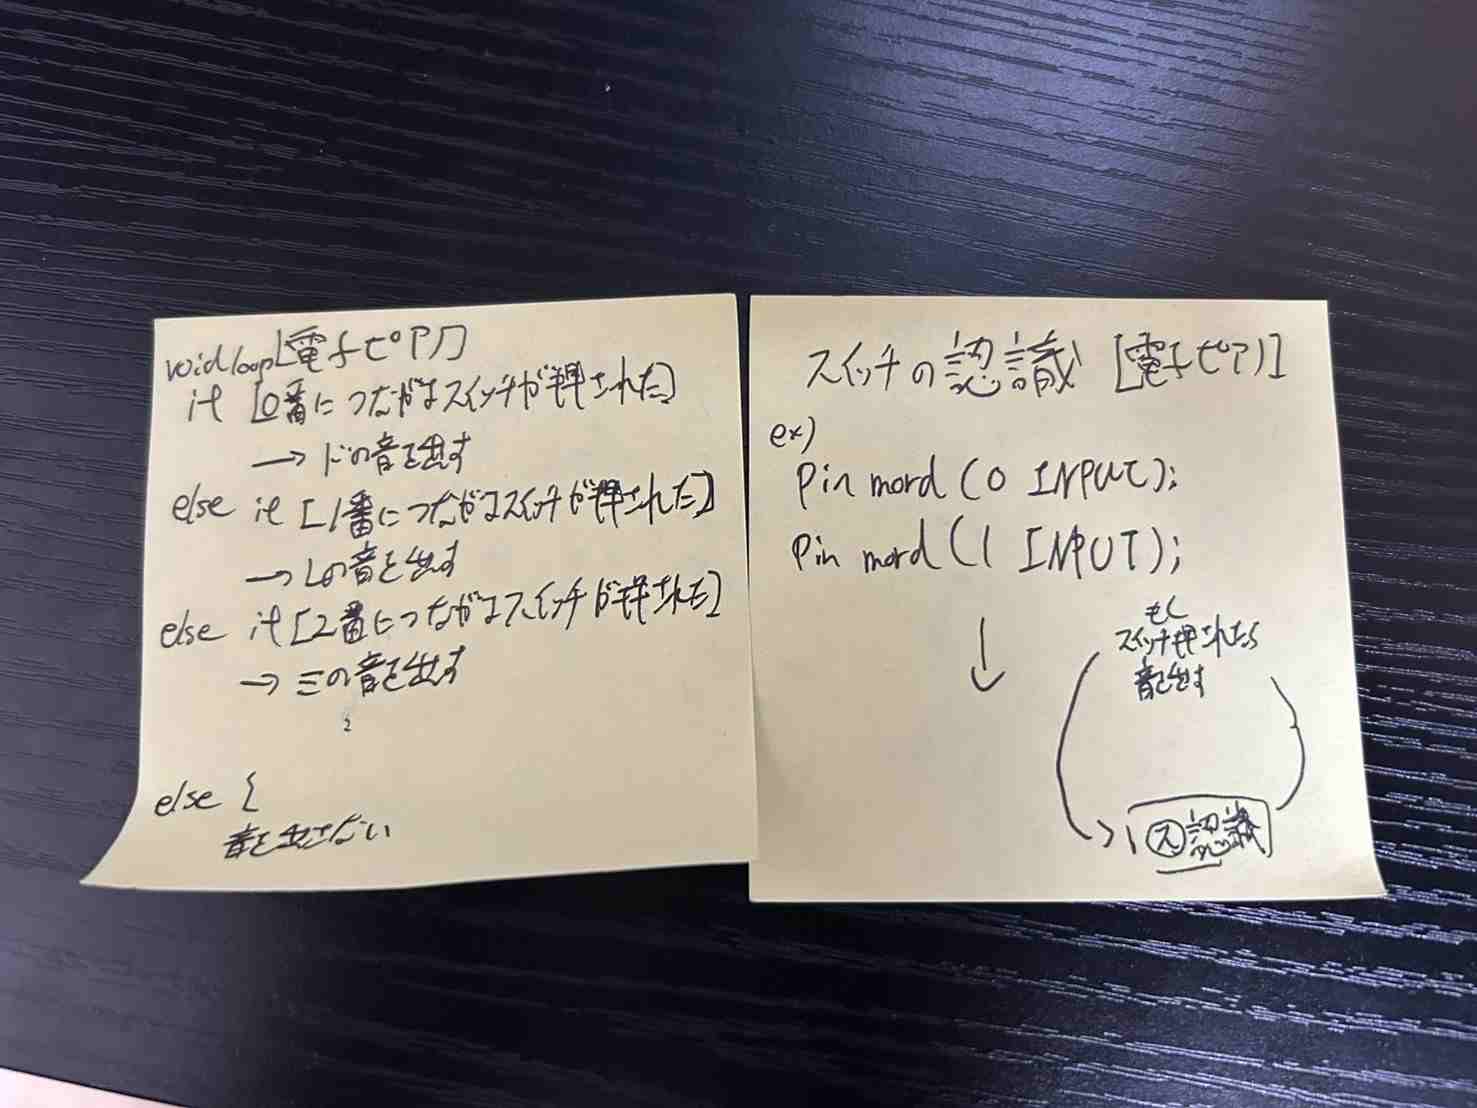 void loop[電子ピアノ]
if [0番につながるスイッチが押された]
→ ドの音を出す
else if [1番につながるスイッチが押された]
→ レの音を出す
else if [2番につながるスイッチが押された]
→ ミの音を出す
2
else {
音を出さない
スイッチの認識 [電子ピアノ]
ex)
Pin mord (0 INPUT);
Pin mord (1 INPUT);
↓
もし
スイッチ押されたら
音を出す
ス認識